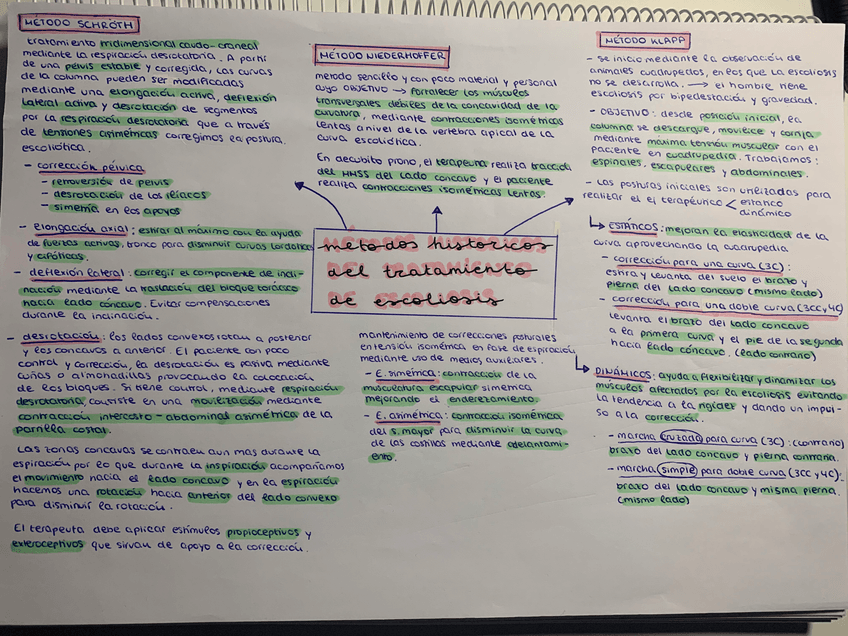 MÉTODO SCHROTH
tratamiento tridimensional caudo-craneal
mediante la respiración desrotatoria. A partir
de una pelvis estable y corregida, las curvas
de la columna pueden ser modificadas
mediante una elongación activa, deflexión
lateral activa y desrotación de segmentos
por la respiración desrotatoria que a través
de tensiones asimétricas corregimos la postura
escoliótica.
- corrección pélvica
- retroversión de pelvis
- desrotación de los ilíacos
- simetría en los apoyos
- elongación axial: estirar al máximo con la ayuda
de fuerzas activas, tronco para disminuir curvas lordóticas
y cifóticas.
- deflexión lateral: corregir el componente de incli-
nación mediante la traslación del bloque torácico
hacia lado cóncavo. Evitar compensaciones
durante la inclinación.
- desrotación: los lados convexos rotan a posterior
y los concavos a anterior. El paciente con poco
control y corrección, la desrotación es pasiva mediante
cuñas o almohadillas provocando la colocación
de los bloques. Si tiene control, mediante respiración
desrotatoria consiste en una movilización mediante
contracción intercosto-abdominal asimétrica de la
parrilla costal.
Las zonas concavas se contraen aun mas durante la
espiración por lo que durante la inspiración acompañamos
el movimiento hacia el lado concavo y en la espiración
hacemos una rotación hacia anterior del lado convexo
para disminuir la rotación.
El terapeuta debe aplicar estímulos propioceptivos y
exteroceptivos que sirvan de apoyo a la corrección.
MÉTODO NIEDERHOFFER
método sencillo y con poco material y personal
cuyo OBJETIVO → fortalecer los músculos
transversales débiles de la concavidad de la
curvatura, mediante contracciones isométricas
lentas a nivel de la vertebra apical de la
curva escoliótica.
En decúbito prono, el terapeuta realiza tracción
del MMSS del lado concavo y el paciente
realiza contracciones isométricas lentas.
métodos historicos
del tratamiento
de escoliosis
mantenimiento de correcciones posturales
en tensión isométrica en fase de espiración
mediante uso de medios auxiliares.
- E. simétrica: contracción de la
musculatura escapular simétrica
mejorando el enderezamiento.
- E. asimétrica: contracción isométrica
del s.mayor para disminuir la curva
de las costillas mediante adelantami-
ento.
MÉTODO KLAPP
- se inicio mediante la observación de
animales cuadrúpedos, en los que la escoliosis
no se desarrolla. → el hombre tiene
escoliosis por bipedestación y gravedad.
- OBJETIVO: desde posición inicial, la
columna se descargue, movilice y corrija
mediante máxima tensión muscular con el
paciente en cuadrupedia. Trabajamos:
espinales, escapulares y abdominales.
- Las posturas iniciales son utilizadas para
realizar el ej terapéutico < estático
dinámico
ESTÁTICOS: mejoran la elasticidad de la
curva aprovechando la cuadrupedia
- corrección para una curva (3C):
estira y levanta del suelo el brazo y
pierna del lado concavo (mismo lado)
- corrección para una doble curva (3CC y 4C)
levanta el brazo del lado concavo
a la primera curva y el pie de la segunda
hacia lado cóncavo. (lado contrario)
DINÁMICOS: ayuda a flexibilizar y dinamizar los
músculos afectados por la escoliosis evitando
la tendencia a la rigidez y dando un impul-
so a la corrección.
- marcha cruzada para curva (3C): (contrario)
brazo del lado concavo y pierna contraria.
- marcha simple para doble curva (3CC y 4C):
brazo del lado concavo y misma pierna.
(mismo lado)